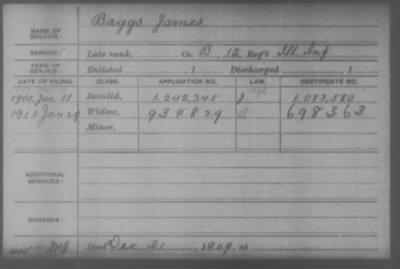 NAME OF SOLDIER: Baggs, James.
SERVICE: Late rank, Co. B, 12 Reg't Ill. Inf
TERM OF SERVICE: Enlisted , 1 Discharged , 1
DATE OF FILING. CLASS. APPLICATION NO. LAW. CERTIFICATE NO.
1900, Jan. 15 Invalid, 1.242,345 1.083,580
1910 Jan 29 Widow, 934829 698363
Minor,
ADDITIONAL SERVICES:
REMARKS:
Died Dec 31, 1909,